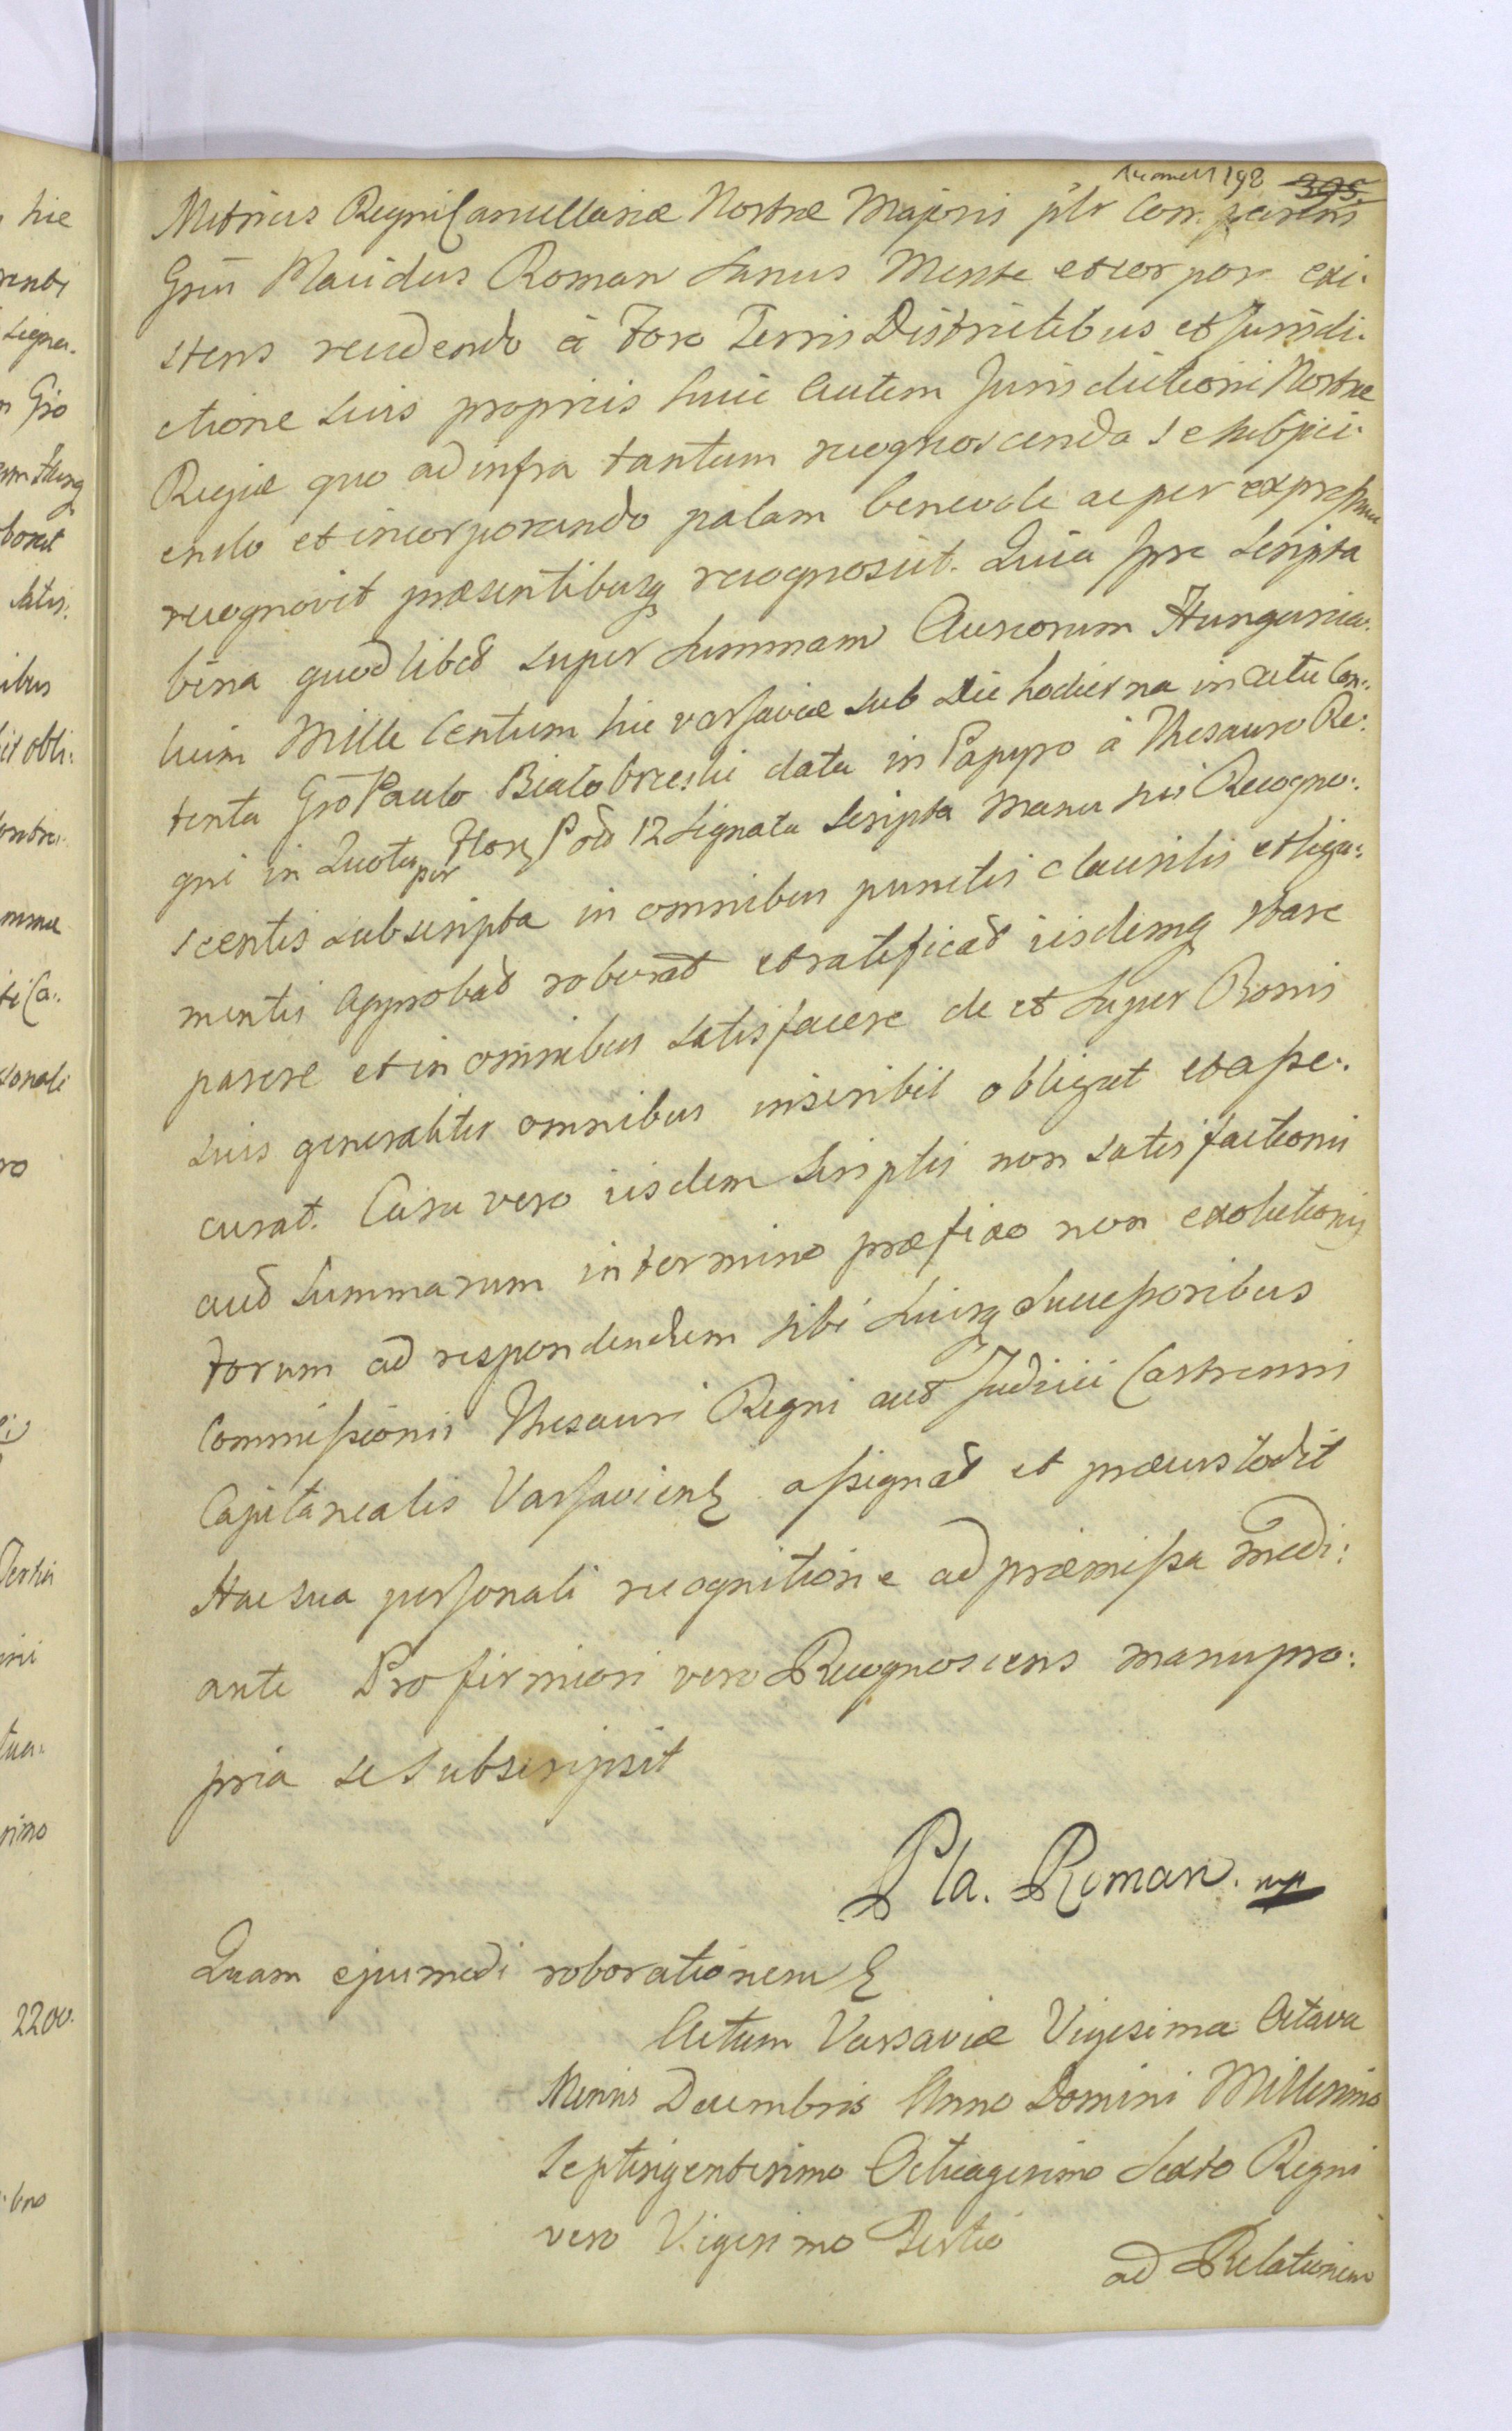 198 395.
Metrices Regni Cancellariæ Nostræ Majoris plr Comparens
Grsus Placidus Roman Sanus Mente et corpore exi:
stens recedendo à Foro Terris Districtibus et Jurisdi:
ctione suis propriis huic autem Jurisdictioni Nostræ
Regiæ quo ad infra tantum recognoscenda se subjici:
endo et incorporando palam benevole ac per expressum
recognovit præsentibusq recognoscit. Quia Ipse scripta
bina quodlibet super Summam Aureorum Hungarica:
lium Mille Centum hic Varsaviæ sub Die hodierna in actu Con:
tenta Gro Paulo Białobrzeski data in Papyro à Thesauro Re:
gni in Quota per Flor. Pol 12 signata scripta manu sui Recogno:
scentis subscripta in omnibus punctis clausulis et liga:
mentis approbat roborat et ratificat iisdemq stare
parere et in omnibus satisfacere de et super Bonis
suis generaliter omnibus inscribit obligat et asse:
curat. Casu vero iisdem scriptis non satisfactionis
aut summarum in termino præfixo non exolutionis
Forum ad respondendum sibi suisq successoribus
Commissionis Thesauri Regni aut Judicii Castrensis
Capitanealis Varsaviens assignat et præcustodit
Hac sua personali recognitione ad præmissa medi:
ante Pro firmiori vero Recognoscens manu pro:
pria se subscripsit
Pla. Roman. mp
Quam ejusmodi roborationem
Actum Varsaviæ Vigesima Octava
Mensis Decembris Anno Domini Millesimo
Septingentesimo Octuagesimo Sexto Regni
vero Vigesimo Tertio
ad Relationem